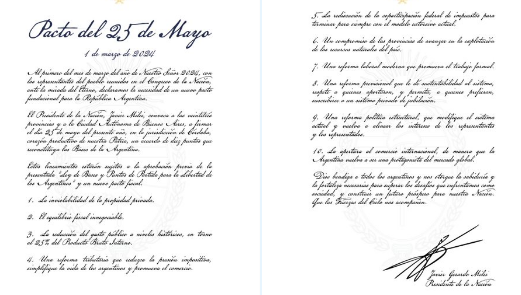 Pacto del 25 de Mayo
1 de marzo de 2024
Al primer día del mes de marzo del año de Nuestro Señor 2024, con
los representantes del pueblo reunidos en el Congreso de la Nación,
ante la mirada del Eterno, declaramos la necesidad de un nuevo pacto
fundacional para la República Argentina.
El Presidente de la Nación, Javier Milei, convoca a las veintitrés
provincias y a la Ciudad Autónoma de Buenos Aires, a firmar
el día 25 de mayo del presente año, en la jurisdicción de Córdoba,
corazón productivo de nuestra Patria, un acuerdo de diez puntos que
reconstituya las Bases de la Argentina.
Estos lineamientos estarán sujetos a la aprobación previa de la
presentada "Ley de Bases y Puntos de Partida para la Libertad de
los Argentinos" y un nuevo pacto fiscal.
1. La inviolabilidad de la propiedad privada.
2. El equilibrio fiscal innegociable.
3. La reducción del gasto público a niveles históricos, en torno
al 25% del Producto Bruto Interno.
4. Una reforma tributaria que reduzca la presión impositiva,
simplifique la vida de los argentinos y promueva el comercio.
5. La rediscusión de la coparticipación federal de impuestos para
terminar para siempre con el modelo extorsivo actual.
6. Un compromiso de las provincias de avanzar en la explotación
de los recursos naturales del país.
7. Una reforma laboral moderna que promueva el trabajo formal.
8. Una reforma previsional que le dé sustentabilidad al sistema,
respete a quienes aportaron, y permita, a quienes prefieran,
suscribirse a un sistema privado de jubilación.
9. Una reforma política estructural, que modifique el sistema
actual y vuelva a alinear los intereses de los representantes
y los representados.
10. La apertura al comercio internacional, de manera que la
Argentina vuelva a ser una protagonista del mercado global.
Dios bendiga a todos los argentinos y nos otorgue la sabiduría y
la fortaleza necesarias para superar los desafíos que enfrentamos como
sociedad, y construir un futuro próspero para nuestra Nación.
Que las Fuerzas del Cielo nos acompañen.
Javier Gerardo Milei
Presidente de la Nación